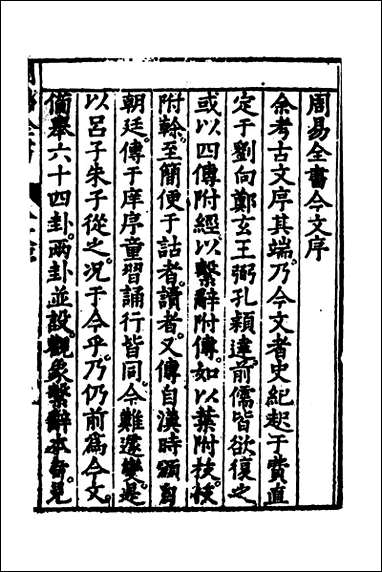 周易全書今文序
余考古文序其端乃今文者史紀起于費直
定于劉向鄭玄王弼孔穎達前儒皆欲復之
或以四傳附經以繫辭附傳如以葉附枝枝
附榦至簡便于詁者讀者又傳自漢時頒自
朝廷傳于庠序童習誦行皆同今難遽變是
以呂子朱子從之況于今乎乃仍前為今文
備舉六十四卦兩卦並設觀象繫辭本旨見